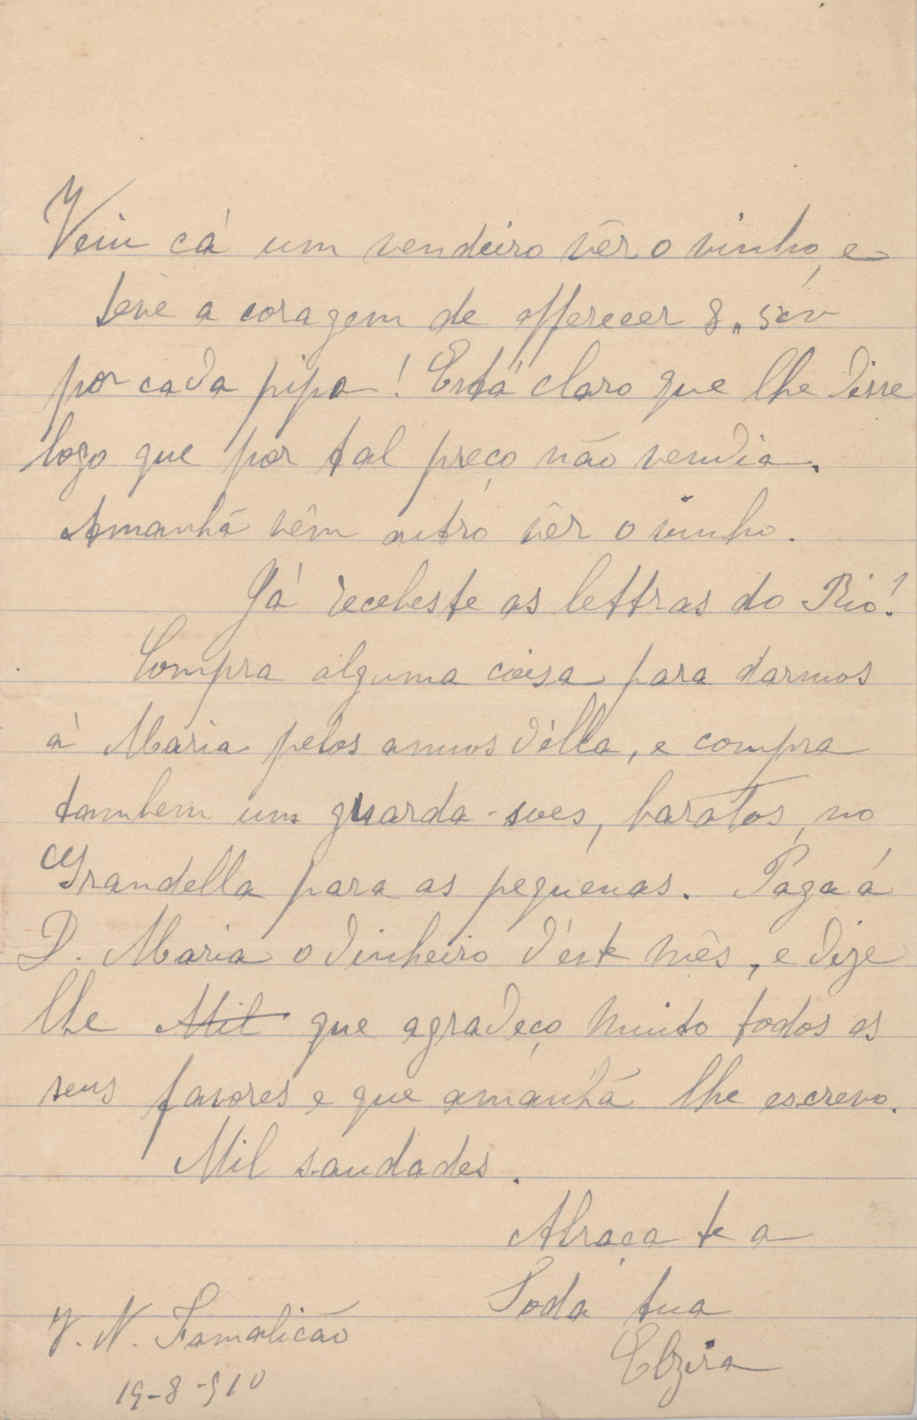 Veiu cá um vendeiro vêr o vinho, e
teve a coragem de offerecer 8,,
por cada pipa! Está claro que lhe disse
logo que por tal preço não vendia.
Amanhã vêm outro vêr o vinho.
Já recebeste as lettras do Rio?
Compra alguma coisa para darmos
á Maria pelos annos d'ella, e compra
tambem uns guarda-soes, baratos, no
Grandella para as pequenas. Paga á
D. Maria o dinheiro d'éste mês, e dize
lhe Mil que agradeço muito todos os
seus favores e que amanhã lhe escrevo.
Mil saudades.
Abraça te a
Toda tua
Elzira
V. N. Famalicão
19-8-910